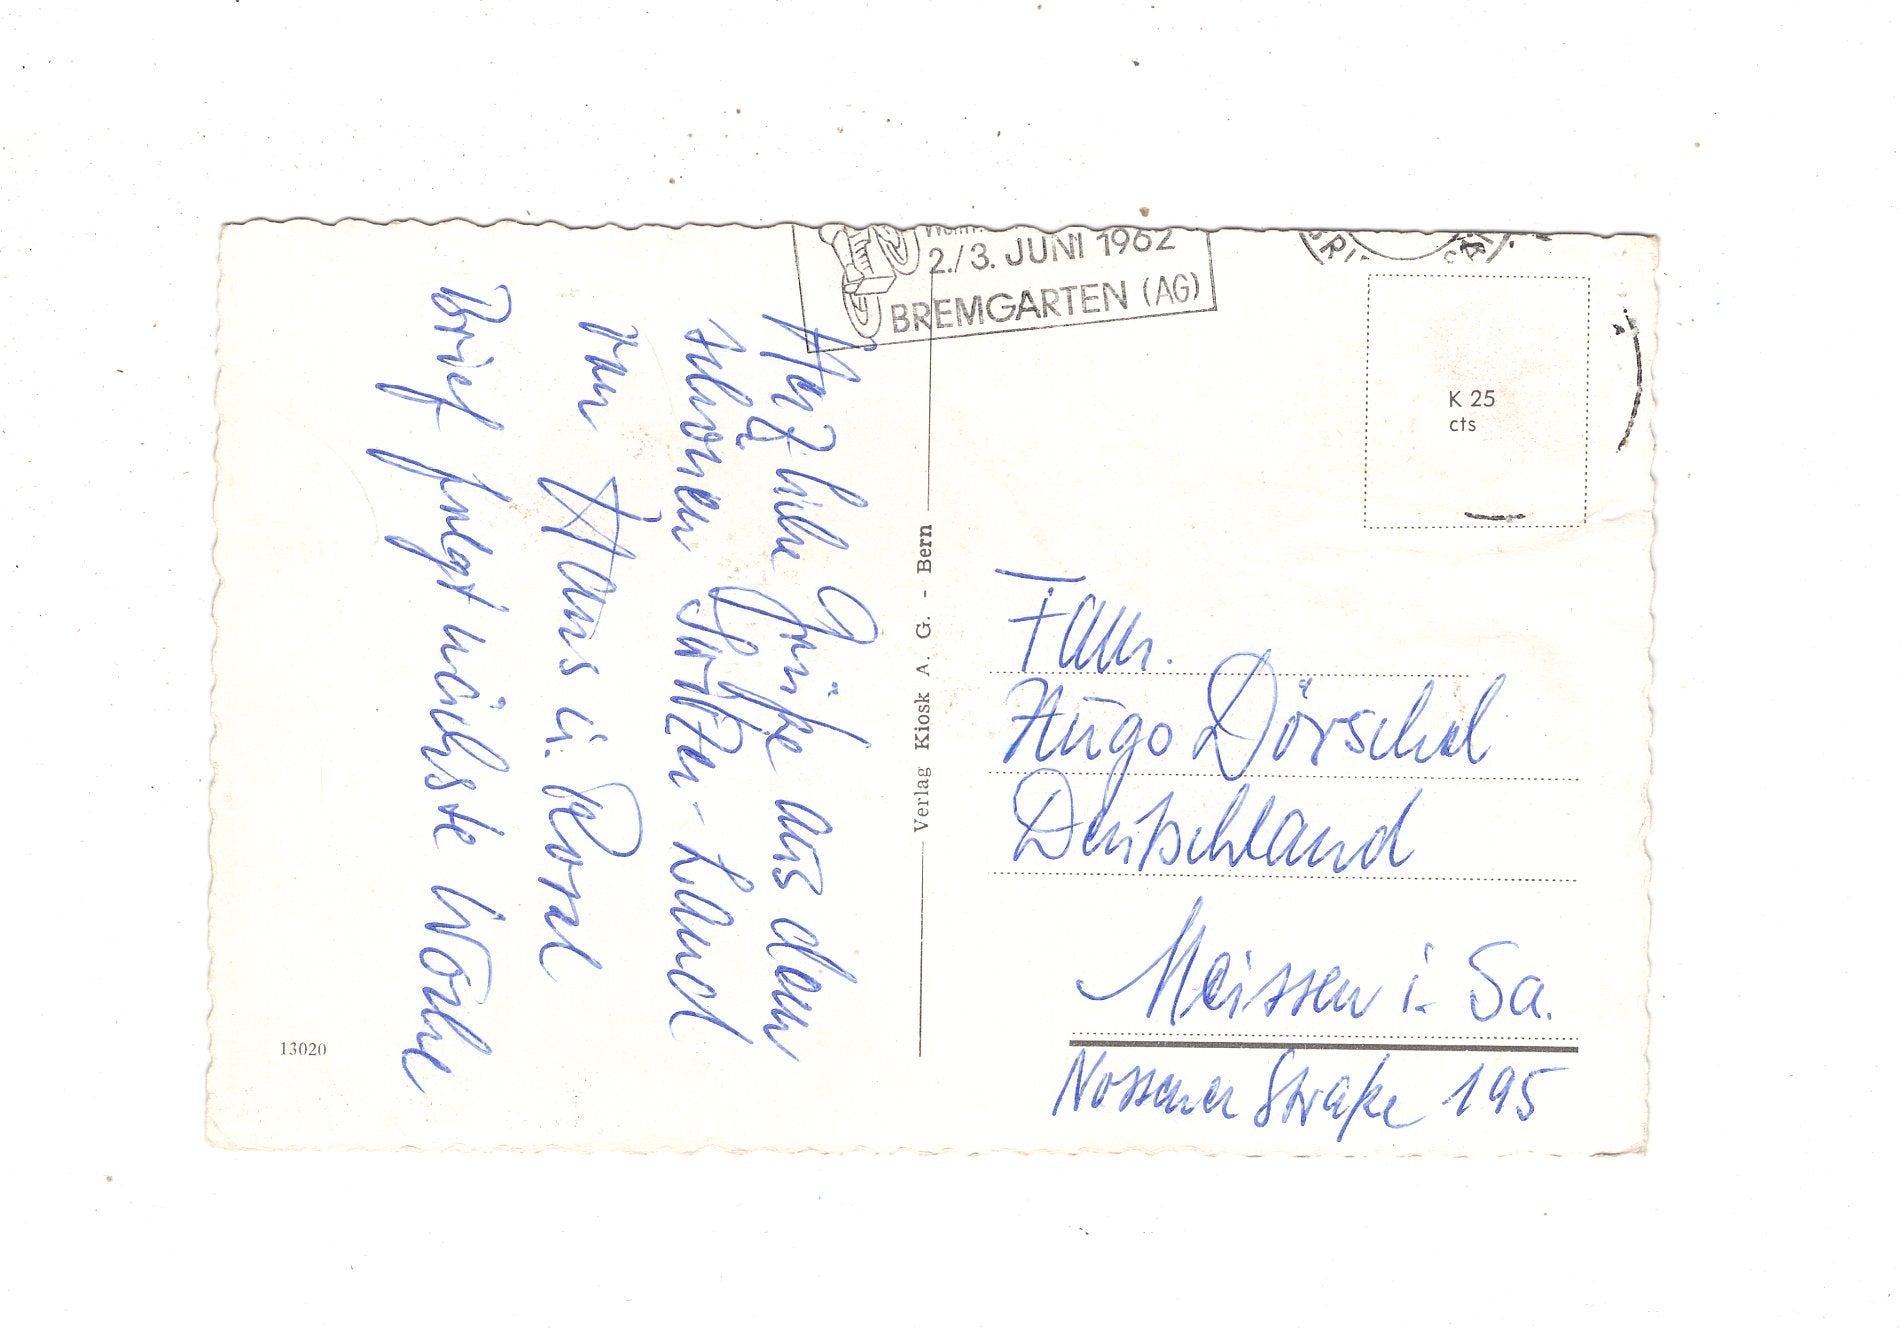 2./3. JUNI 1962
BREMGARTEN (AG)
K 25
cts
Herzliche Grüße aus dem
schönen Land
von Hans u.
Brief folgt nächste Woche
Verlag Kiosk A. G. - Bern
Fam.
Hugo Dörschel
Deutschland
Meissen i. Sa.
Nossener Straße 195
13020